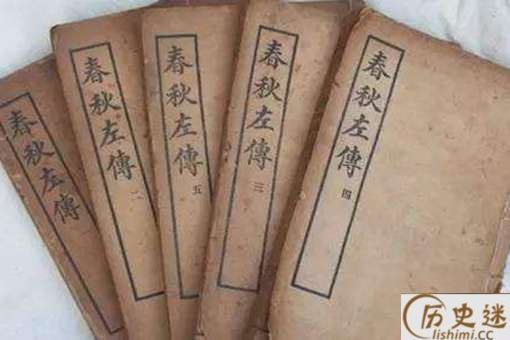 春秋左傳
春秋左傳二
春秋左傳五
春秋左傳三
春秋左傳四
历史迷
lishimi.cc